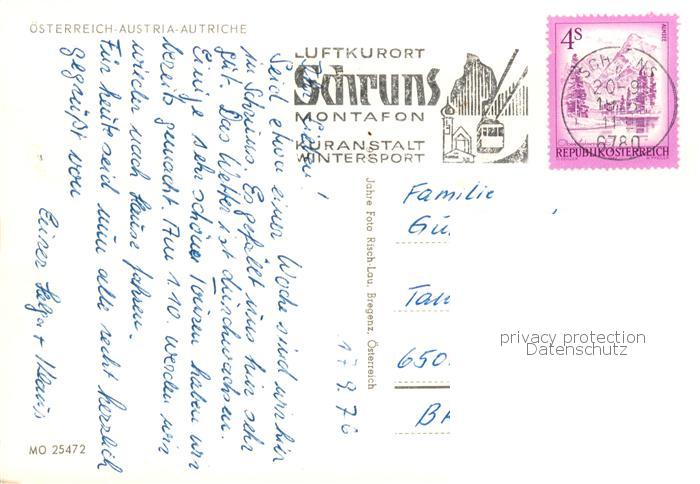 ÖSTERREICH-AUSTRIA-AUTRICHE
LUFTKURORT
Schruns
MONTAFON
KURANSTALT
WINTERSPORT
4S
ALMSEE
REPUBLIK ÖSTERREICH
20-9
6780
Ihr Lieben!
Seid etwa einer Woche sind wir hier
in Schruns. Es gefällt uns hier sehr
gut. Das Wetter ist durchwachsen.
Einige sehr schöne Touren haben wir
bereits gemacht. Am 1.10. werden wir
wieder nach Hause fahren.
Für heute seid nun alle recht herzlich
gegrüßt von
Euren Helga + Klaus
17.9.76
Jahre Foto Risch-Lau, Bregenz, Österreich
Familie
Gü
Tau
650
BA
privacy protection
Datenschutz
MO 25472